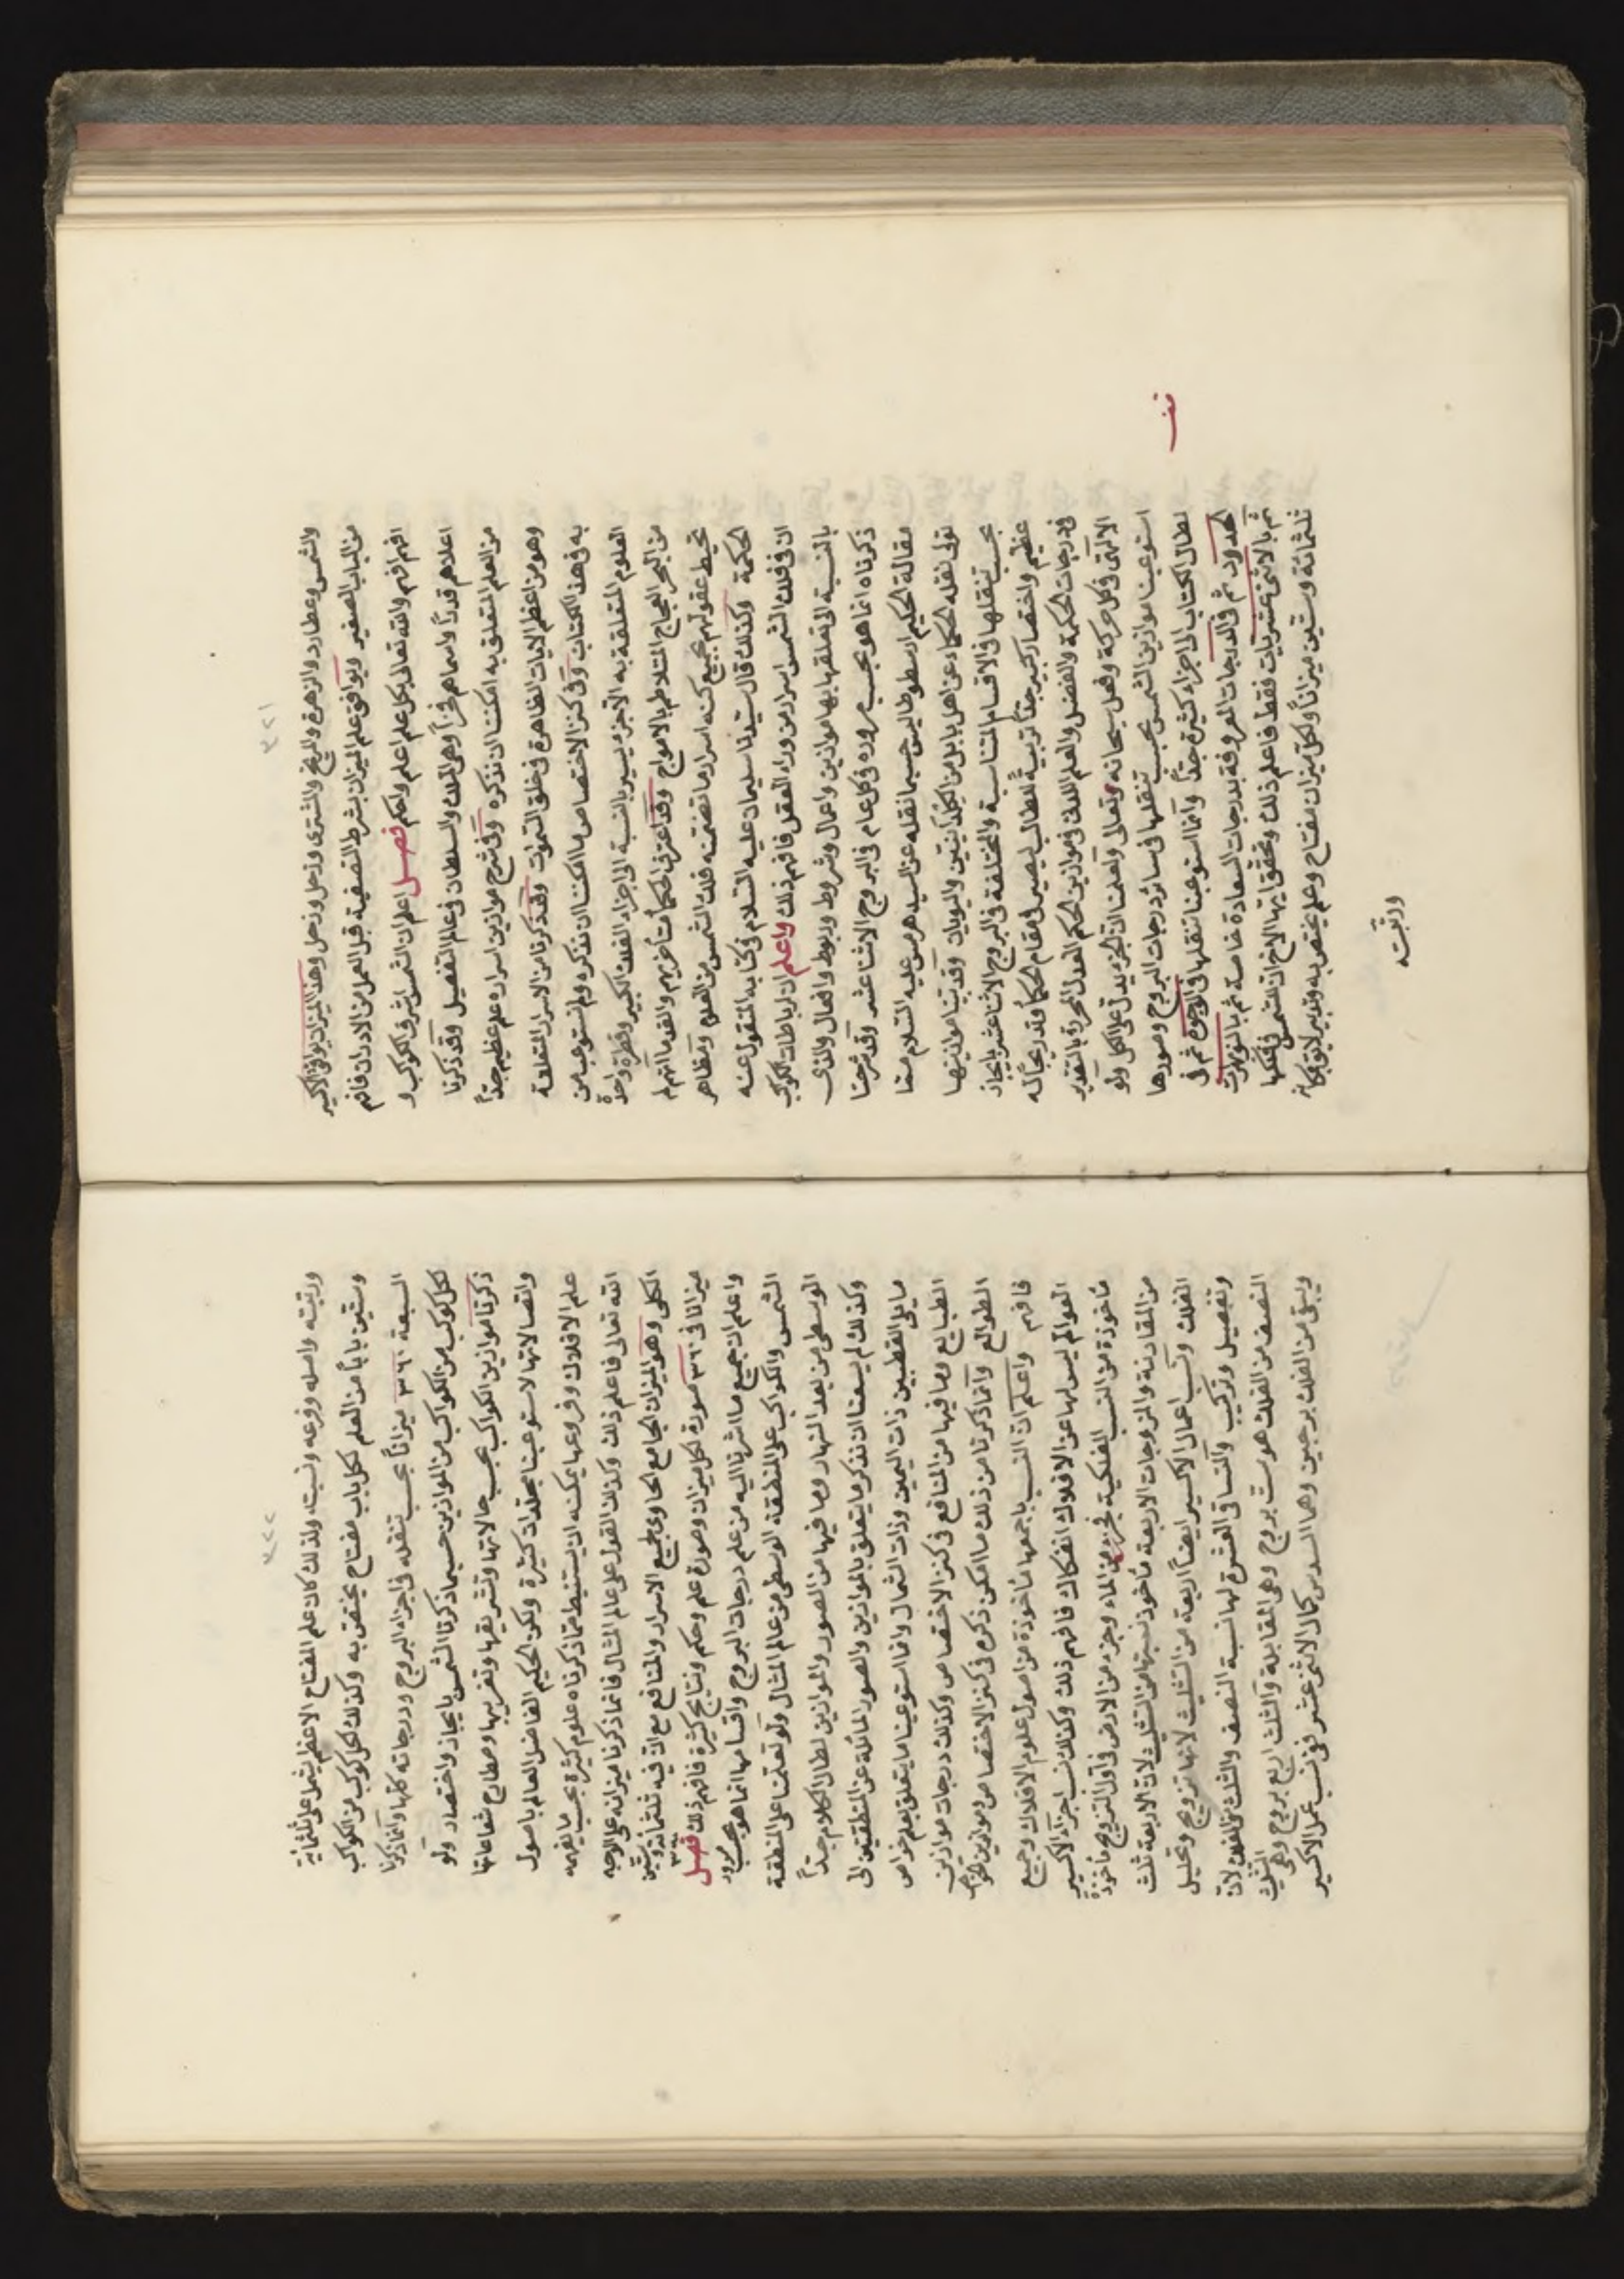 ٣٢١
والشمس وعطارد والزهرة والمريخ والمشترى وزحل وزحل وهذا الميزان يوافق الاكسير
من الباب الصغير ويوافق علم الميزان بشرط التصفية قبل العمل من الادران فافهم
افهم افهم والله تعالى بكل علم اعلم واحكم فصل اعلم ان الشمس اشرف الكواكب و
اعلاهم قدراً واسماهم فخراً وهى الملك والسلطان فى عالم التفصيل وقد ذكرنا
من العلم المتعلق به امكننا ان نذكره وفى شرح موازين اسراره علم عظيم جداً
وهو من اعظم الايات الظاهرة فى خلق السموات وقد ذكرنا من الاسرار المتعلقة
به فى هذا الكتاب وفى كنز الاختصاص ما امكننا ان نذكره ولم نستوعب من
العلوم المتعلقة به الا جزء يسير بالنسبة الى اجزاء الفلك الكبير وقطرة واحدة
من البحر العجاج المتلاطم بالامواج وقد اعترف الحكماء متأخريهم والقدما انهم لم
تحيط عقولهم بجميع كنه اسرار ما تضمنه فلك الشمس من العلوم ومظاهر
الحكمة وكذلك قال سيدنا سليمان عليه السلام فى كتابه المنقول عنه
ان فى فلك الشمس اسرار من وراء العقل فافهم ذلك واعلم ان لرباطات الكواكب
بالنسبة الى تعلقها بها موازين واعمال وشروط وربوط وافعال والذى
ذكرناه انما هو بحسب مروره فى كل عام فى البروج الاثنا عشر وقد شرحنا
مقالة الحكيم ارسطوطاليس حسبما نقله عن السيد هرمس عليه السلام مما
تولى نقله الحكماء عن اهل بابل من الكلدانيين واليونان وقد بينا موازينها
بحسب تنقلها فى الاقسام المتناسبة والمختلفة فى البروج الاثنا عشر بايجاز
عظيم واختصار كبير جداً تربيةً للطالب ليصير فى مقام الحكماء وتدريجاً له
فى درجات الحكمة والفضل والعلم اللدنى فى موازين الحكم العدل المحررة بالتقدير
الالهى فى كل حركة وفعل سبحانه وتعالى ولعلمنا ان الجزء يدل على الكل ولو
استوعبنا موازين الشمس بحسب تنقلها فى سائر درجات البروج وصورها
لطال الكتاب الى اجزاء كثيرة جداً وانما استوعبنا تنقلها فى الوجوه ثم فى
الحدود ثم فى الدرجات المعروفة بدرجات السعادة خاصة ثم بالنوبهرات
ثم بالاثنى عشريات فقط فاعلم ذلك وتحقق ايها الاخ ان للشمس فى فلكها
ثلثمائة وستين ميزاناً ولكل ميزان مفتاح وعلم يختص به وتدبير لائق بمكانه
ورتبته
٣٢٢
ورتبته واصله وفرعه ونسبته ولذلك كان علم المفتاح الاعظم يشمل على ثلثمائة
وستين باباً من العلم لكل باب مفتاح يختص به وكذلك لكل كوكب من الكواكب
السبعة ٣٦٠ ميزاناً بحسب تنقله فى اجزاء البروج ودرجاته كلها وانما ذكرنا
لكل كوكب من الكواكب من الموازين حسبما ذكرنا الشمس بايجاز واختصار ولو
ذكرنا موازين الكواكب بحسب حالاتها وتشريقها وتغريبها ومطارح شعاعاتها
واتصالاتها لاستوعبنا مجلدات كثيرة ولكن الحكيم الفاضل العالم باصول
علم الافلاك وفروعها يمكنه ان يستنبط مما ذكرناه علوم كثيرة بحسب ما يفهمه
الله تعالى فاعلم ذلك وكذلك القول على عالم المثال فانما ذكرنا ميزانه على الوجه
الكلى وهو الميزان الجامع الحاوى لجميع الاسرار والمنافع مع ان فيه ثلثمائة وستين
ميزانا فى ٣٦٠ صورة لكل ميزان وصورة علم وحكم ونتايج كثيرة فافهم ذلك فصل
واعلم ان جميع ما اشرنا اليه من علم درجات البروج واقسامها انما هو بحسب مرور
الشمس والكواكب على المنطقة الوسطى من عالم المثال ولو تعلمنا على المنطقة
الوسطى من بعد النهار وما فيها من الصور والموازين لطال الكلام جداً
وكذلك لم يسعنا ان نذكر ما يتعلق بالموازين والصور المائلة عن المنطقتين الى
ما يلى القطبين ذات اليمين وذات الشمال وانما استوعبنا ما يتعلق بعلم خواص
الطبايع وما فيها من المنافع فى كنز الاختصاص وكذلك درجات موازين
الطوالع وانما ذكرنا من ذلك ما امكن ذكره فى كنز الاختصاص وموازين الخواص
فافهم واعلم ان النسب باجمعها ماخوذة من اصول علوم الافلاك وجميع
العوالم ليس لها عن الافلاك انفكاك فافهم ذلك وكذلك نسب اجزاء الاكسير
ماخوذة من النسب الفلكية فجزء من الماء وجزء من الارض فى اول التزويج ماخوذة
من المقارنة والمزوجات الاربعة ماخوذ نسبتها من التثليث لان الاربعة ثلث
الفلك وانسب اعمال الاكسير ايضاً اربعة من التثليث لانها تزويج وتحليل
وتفصيل وتركيب والتساقى العشرة لها نسبة النصف والثلث من الفلك لان
النصف من الفلك هو ست بروج وهى المقابلة والثلث اربع بروج وهى التثليث
ويبقى من الفلك برجين وهما السدس كمال الاثنى عشر فهى نسب عمل الاكسير